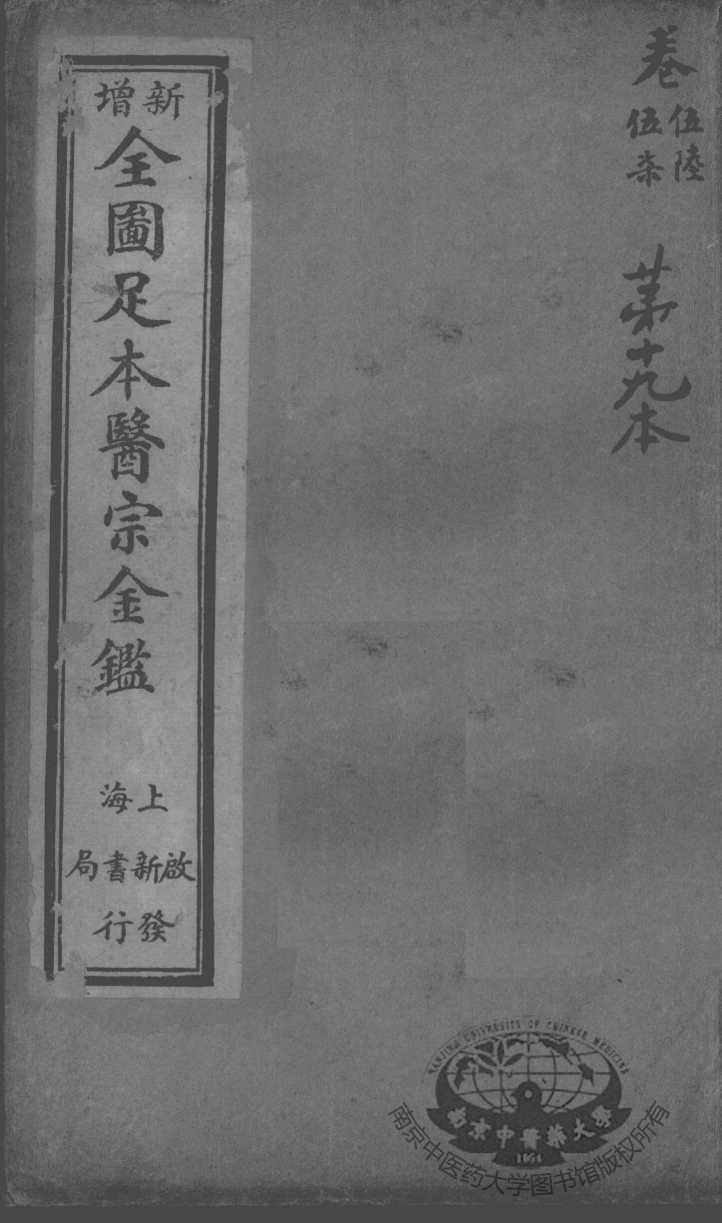 卷
伍陸
伍柒
第十九本
新增
全圖足本醫宗金鑑
上海
啟新書局
發行
NANJING UNIVERSITY OF CHINESE MEDICINE
南京中醫藥大學
1954
南京中医药大学图书馆版权所有